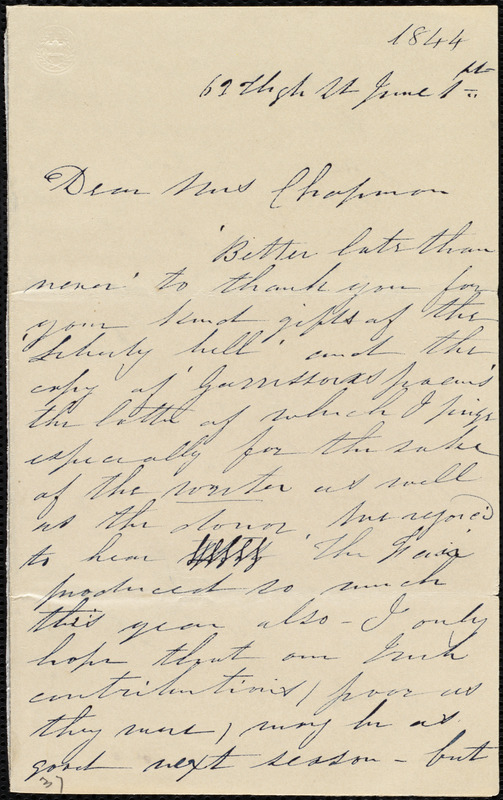 1844
62 High St June 1st
Dear Mrs Chapman
'Better late than
never' to thank you for
your kind gifts of the
'Liberty bell' and the
copy of Garrisson's poems
the latter of which I prize
especially for the sake
of the writer as well
as the donor, we rejoic'd
to hear the Fair
produced so much
this year also - I only
hope that our Irish
contributions, poor as
they were, may be as
good next season - but